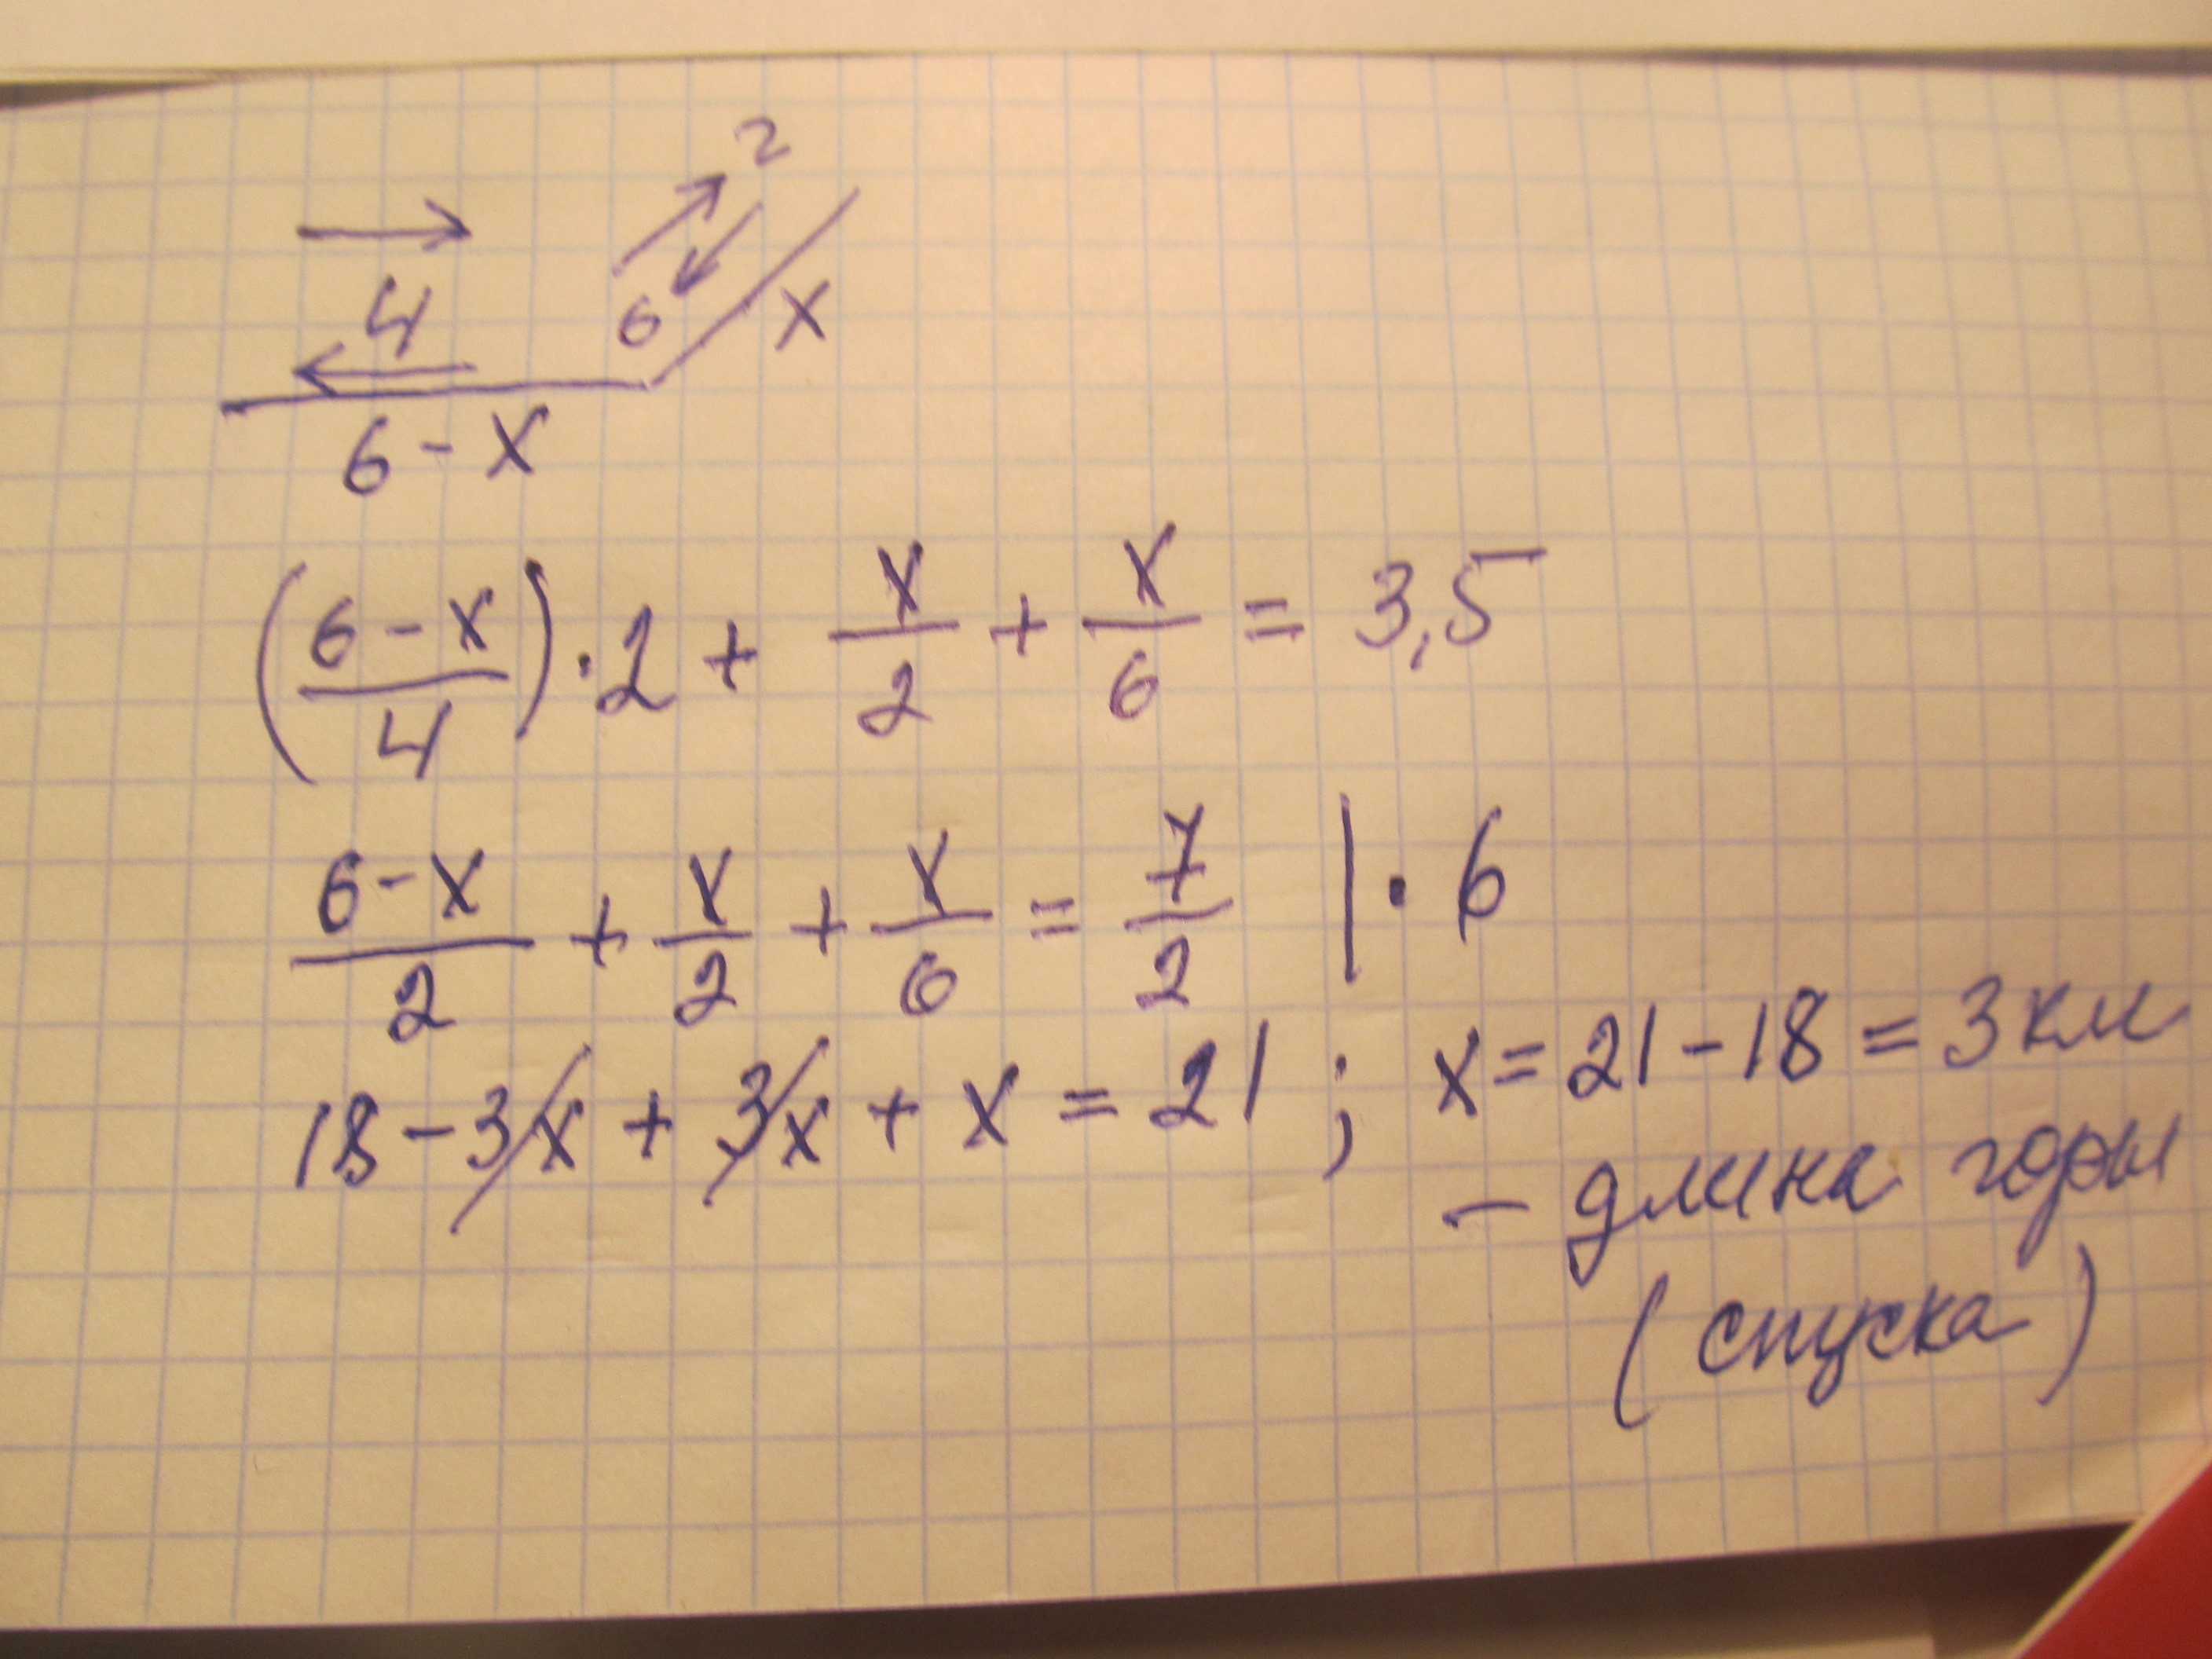 2
4
6
x
6 - x
(6 - x / 4) · 2 + x/2 + x/6 = 3,5
6 - x / 2 + x/2 + x/6 = 7/2 | · 6
18 - 3x + 3x + x = 21 ; x = 21 - 18 = 3 км
- длина горы
(спуска)